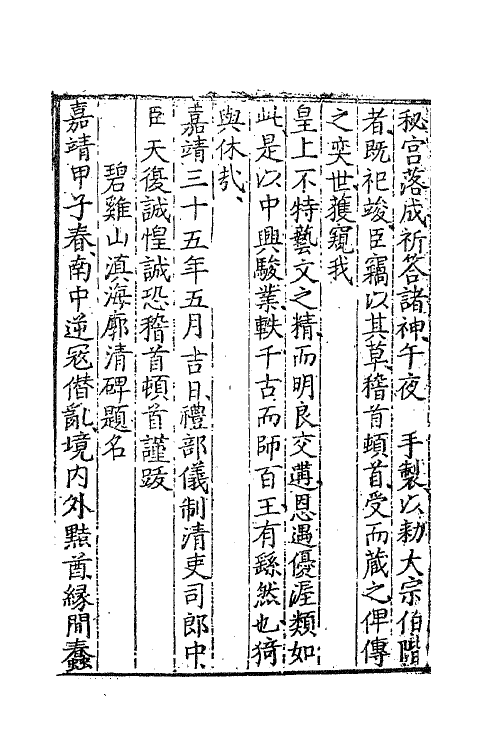 秘宫落成祈答諸神午夜　手製以勑大宗伯階
者既祀竣臣竊以其草稽首頓首受而蔵之俾傳
之奕世獲窺我
皇上不特藝文之精而明良交遘恩遇優渥類如
此是以中興駿業軼千古而師百王有繇然也猗
與休㢤
嘉靖三十五年五月吉日禮部儀制清吏司郎中
臣天復誠惶誠恐稽首頓首謹跋
碧雞山滇海廓清碑題名
嘉靖甲子春南中逆冦僭亂境内外㸃酋縁間蠢